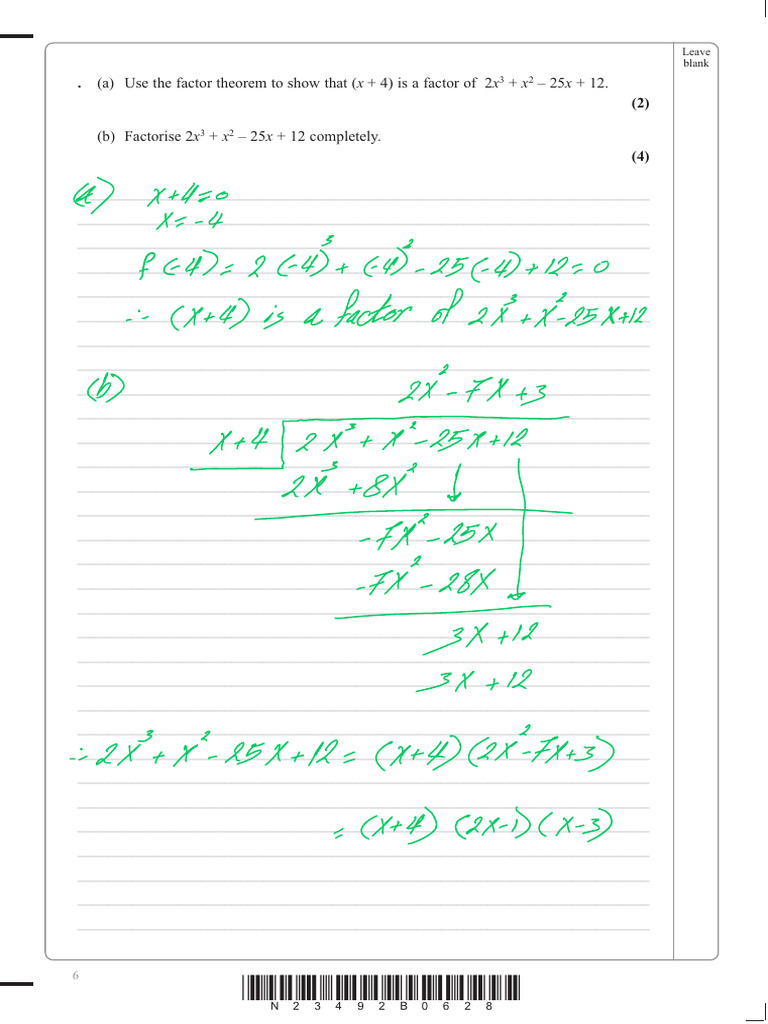 Leave
blank
. (a) Use the factor theorem to show that (x + 4) is a factor of 2x³ + x² – 25x + 12.
(2)
(b) Factorise 2x³ + x² – 25x + 12 completely.
(4)
(a) x+4=0
x=-4
f(-4)= 2(-4)³+(-4)²-25(-4)+12=0
∴ (x+4) is a factor of 2x³+x²-25x+12
(b) 2x²-7x+3
x+4 2x³+x²-25x+12
2x³+8x² ↓
-7x²-25x
-7x²-28x
3x+12
3x+12
∴ 2x³+x²-25x+12= (x+4)(2x²-7x+3)
= (x+4) (2x-1)(x-3)
6
N23492B0628